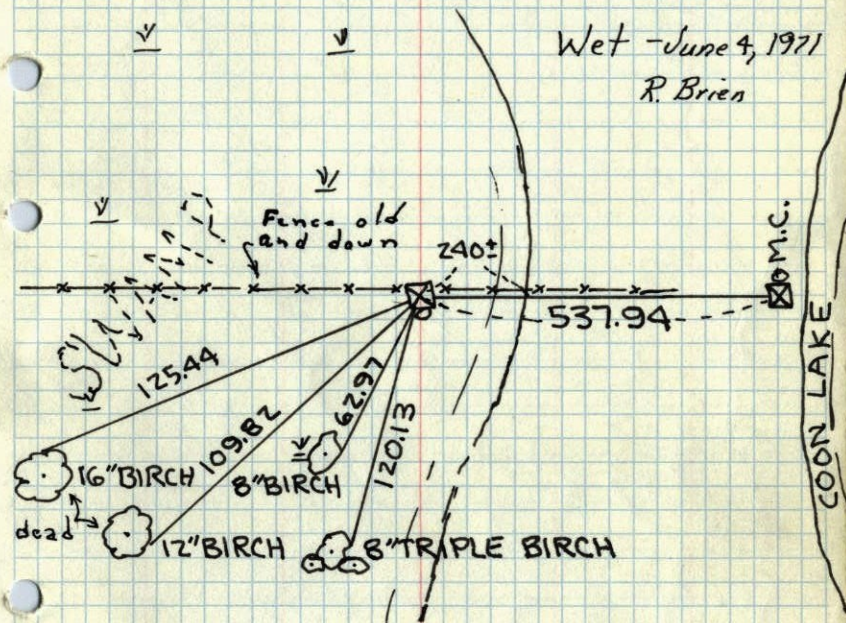 Wet - June 4, 1971
R. Brien
Fence old
and down
240±
M.C.
537.94
125.44
109.82
62.97
120.13
16" BIRCH
8" BIRCH
dead
12" BIRCH
8" TRIPLE BIRCH
COON LAKE